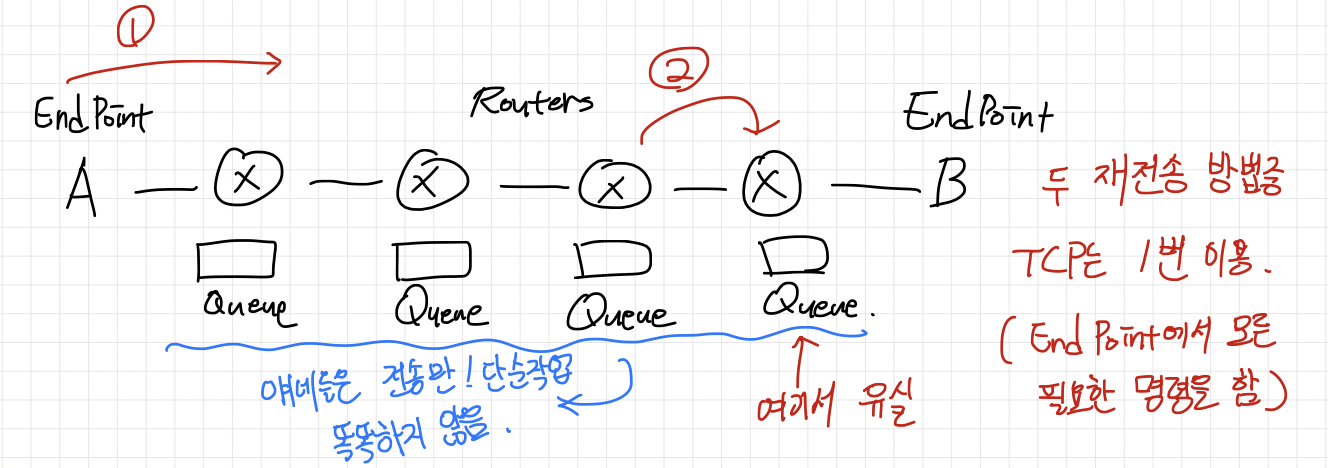 ①
②
EndPoint
Routers
EndPoint
A
X
X
X
X
B
Queue
Queue
Queue
Queue.
얘네들은 전송만! 단순작업
똑똑하지 않음.
여기서 유실
두 재전송 방법중
TCP는 1번 이용.
( End Point에서 모든
필요한 명령을 함)